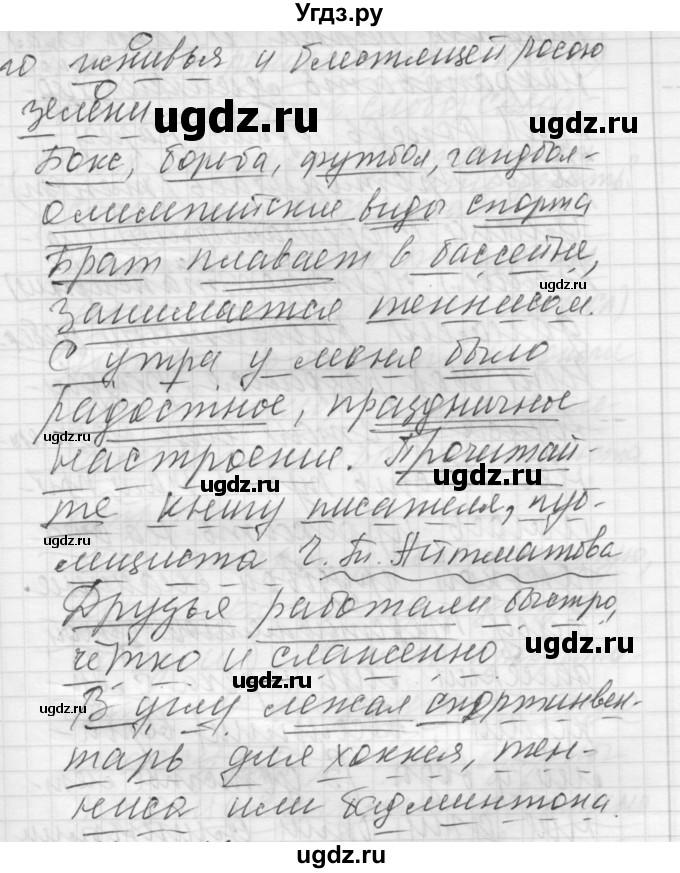 Угдз.ру
го и блестящей росою
зелени.
Бокс, борьба, футбол, гандбол -
олимпийские виды спорта
Брат плавает в бассейне,
занимается теннисом.
С утра у меня было
радостное, праздничное
настроение. Прочитай-
те книгу писателя, пуб-
лициста Ч. Айтматова
Друзья работали быстро,
чётко и слаженно
В углу лежал спортинвен-
тарь для хоккея, тен-
ниса или бадминтона.
ugdz.ru
ugdz.ru
ugdz.ru
ugdz.ru
ugdz.ru
ugdz.ru
ugdz.ru
ugdz.ru
ugdz.ru
ugdz.ru
ugdz.ru
ugdz.ru
ugdz.ru